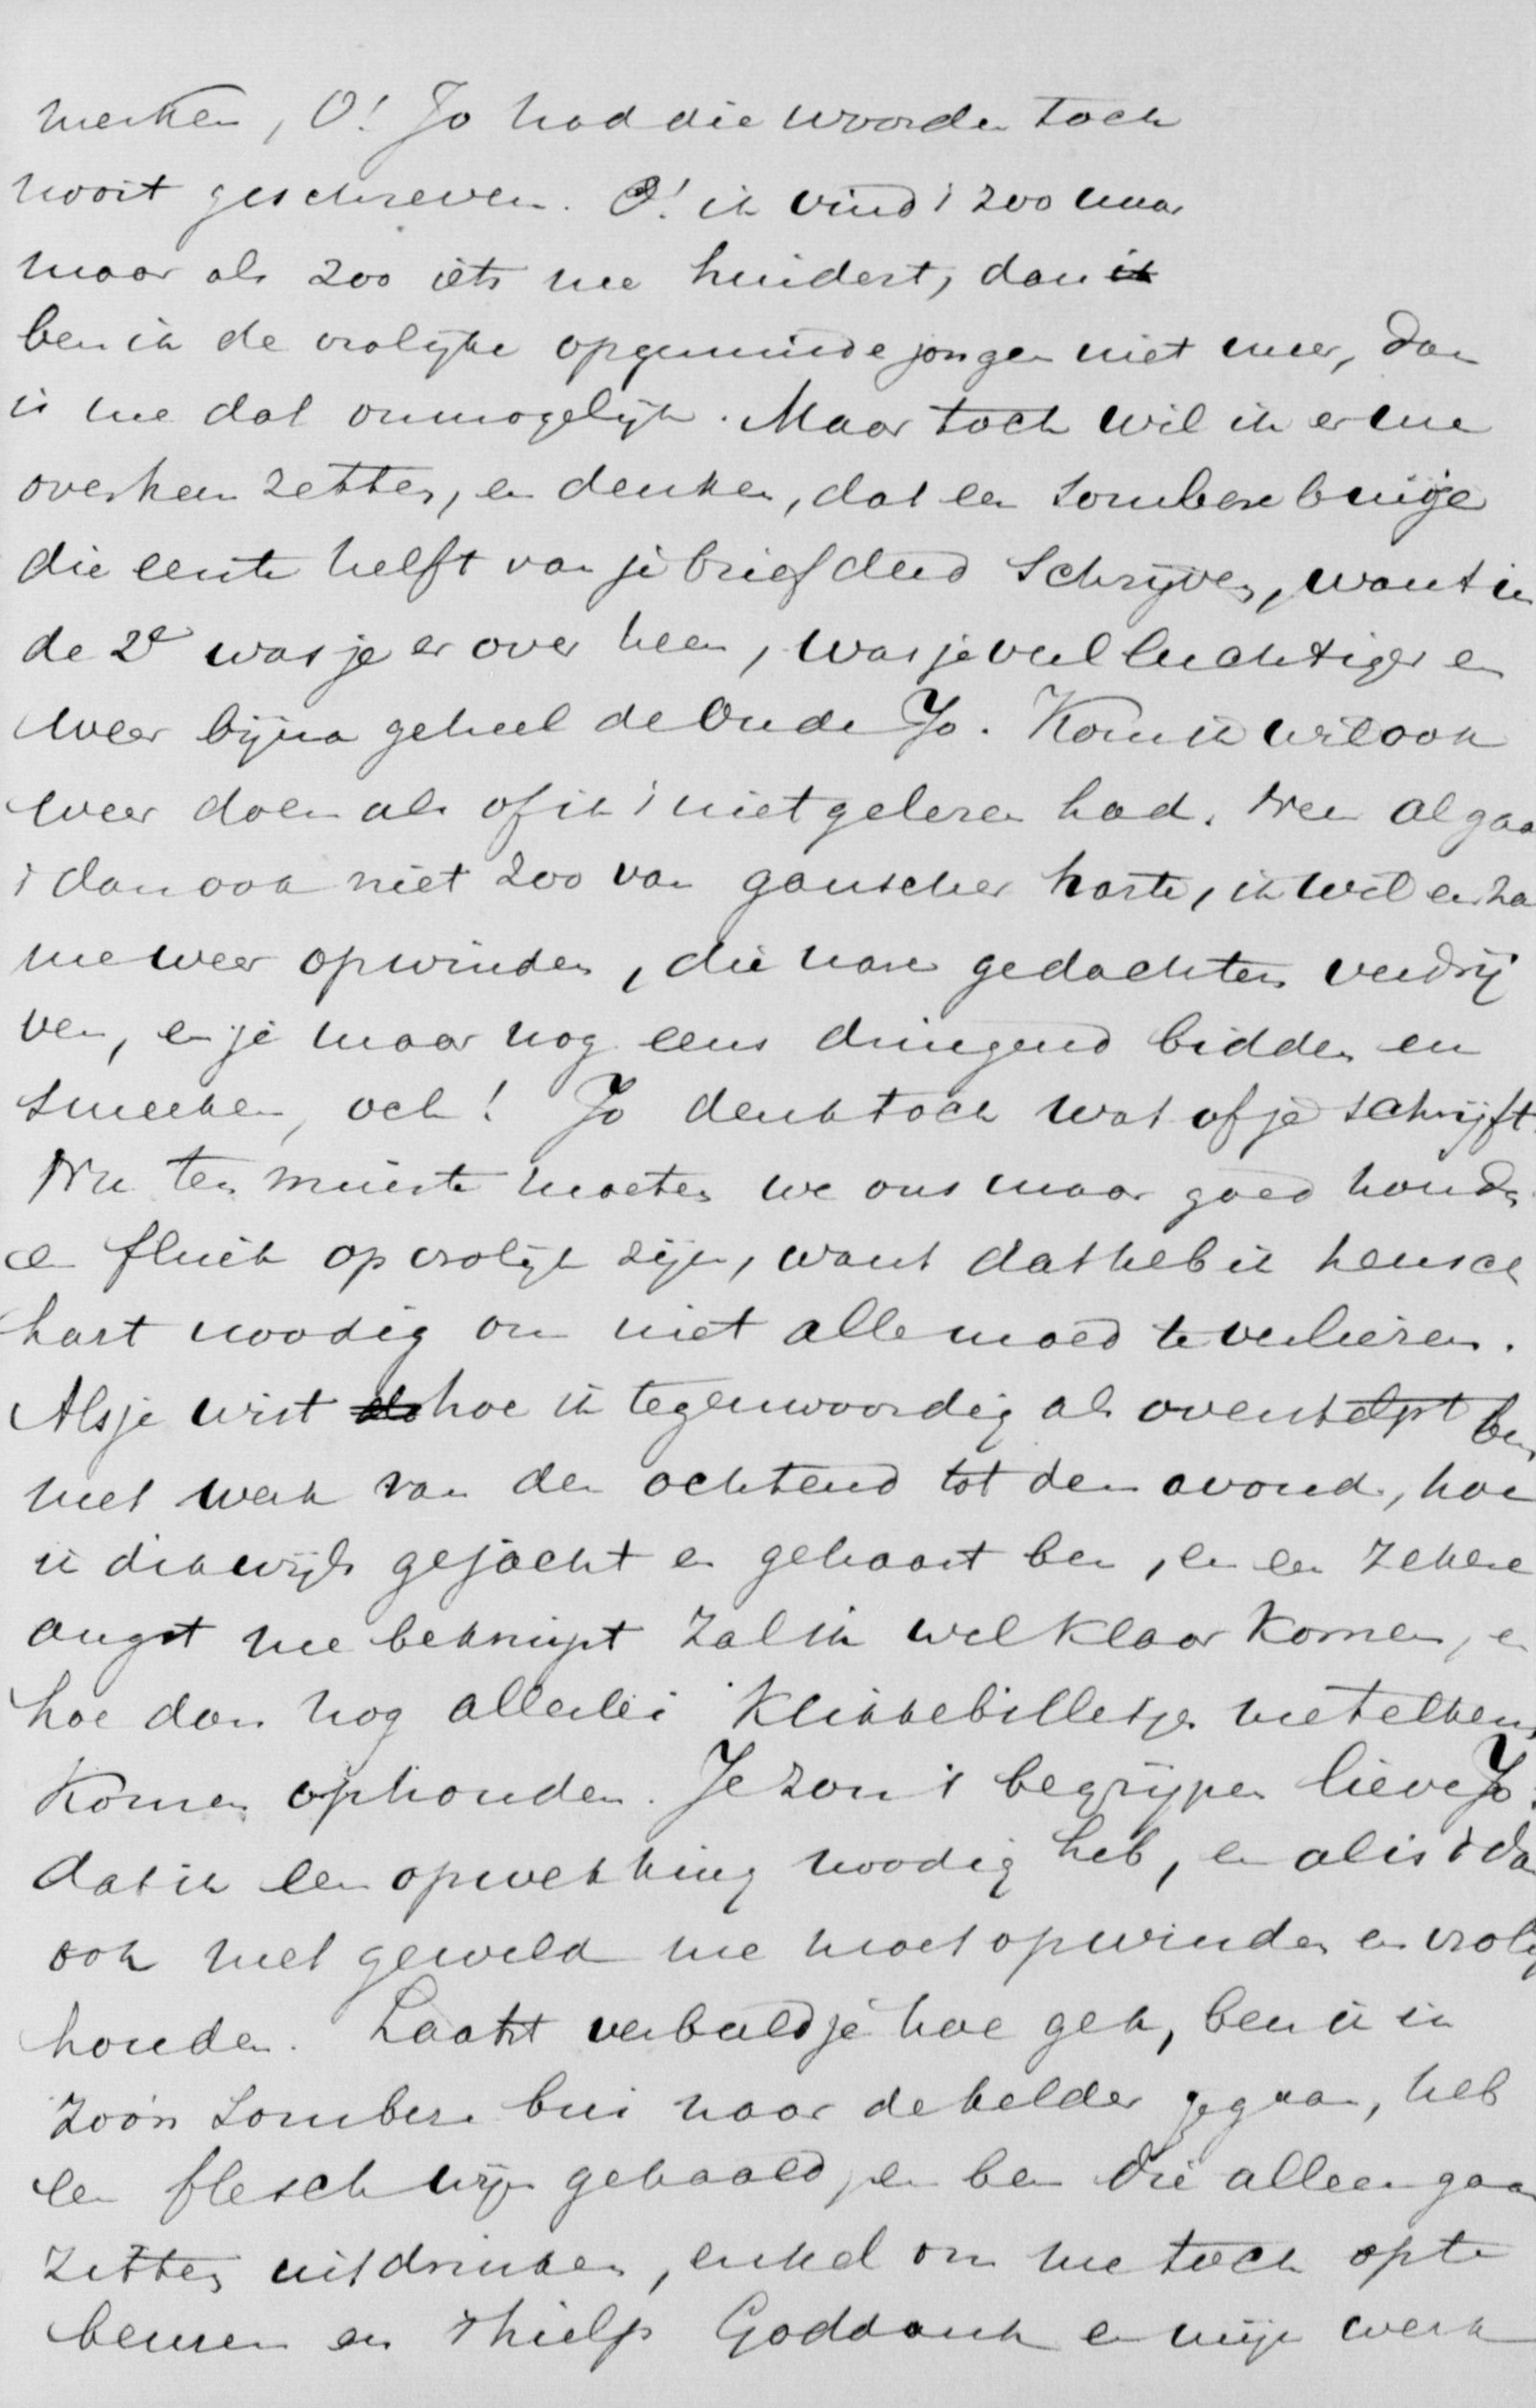 merken, O! Jo had die woorden toch
nooit geschreven. O! ik vind 't zoo naar
maar als zoo iets me hindert, dan ik
ben ik de vrolijke opgeruimde jongen niet meer, dan
is me dat onmogelijk. Maar toch wil ik er me
overheen zetten, en denken, dat een sombere buije
die eerste helft van je brief deed schrijven, want in
de 2e was je er over heen, was je veel luchtiger en
weer bijna geheel de Oude Jo. Kom ik wil ook
weer doen als of ik 't niet gelezen had. Nee al gaa
't dan ook niet zoo van ganscher harte, ik wil en za
me weer opwinden, die nare gedachten verdrij
ven, en je maar nog eens dringend bidden en
smeeken, och! Jo denk toch wat of je schrijft.
Nu ten minste moeten we ons maar goed houden
en flink op vrolijk zijn, want dat heb ik heusch
hart noodig om niet alle moed te verliezen.
Als je wist do hoe ik tegenwoordig als overstelpt ben
met werk van den ochtend tot den avond, hoe
ik dikwijls gejacht en gehaast ben, en een zekere
angst me beknijpt zal ik wel klaar komen, en
hoe dan nog allerlei klikkebilletjes me telkens
komen ophouden. Je zou 't begrijpen lieve Jo.
dat ik een opwekking noodig heb, en al is 't da
ook met geweld me moet opwinden en vrolij
houden. Laatst verbeeld je hoe gek, ben ik in
zoo'n sombere bui naar de kelder gegaan, heb
een flesch wijn gehaald, en ben die alleen gaan
zitten uitdrinken, enkel om me toch op te
beuren en 't hielp Goddank en mijn werk